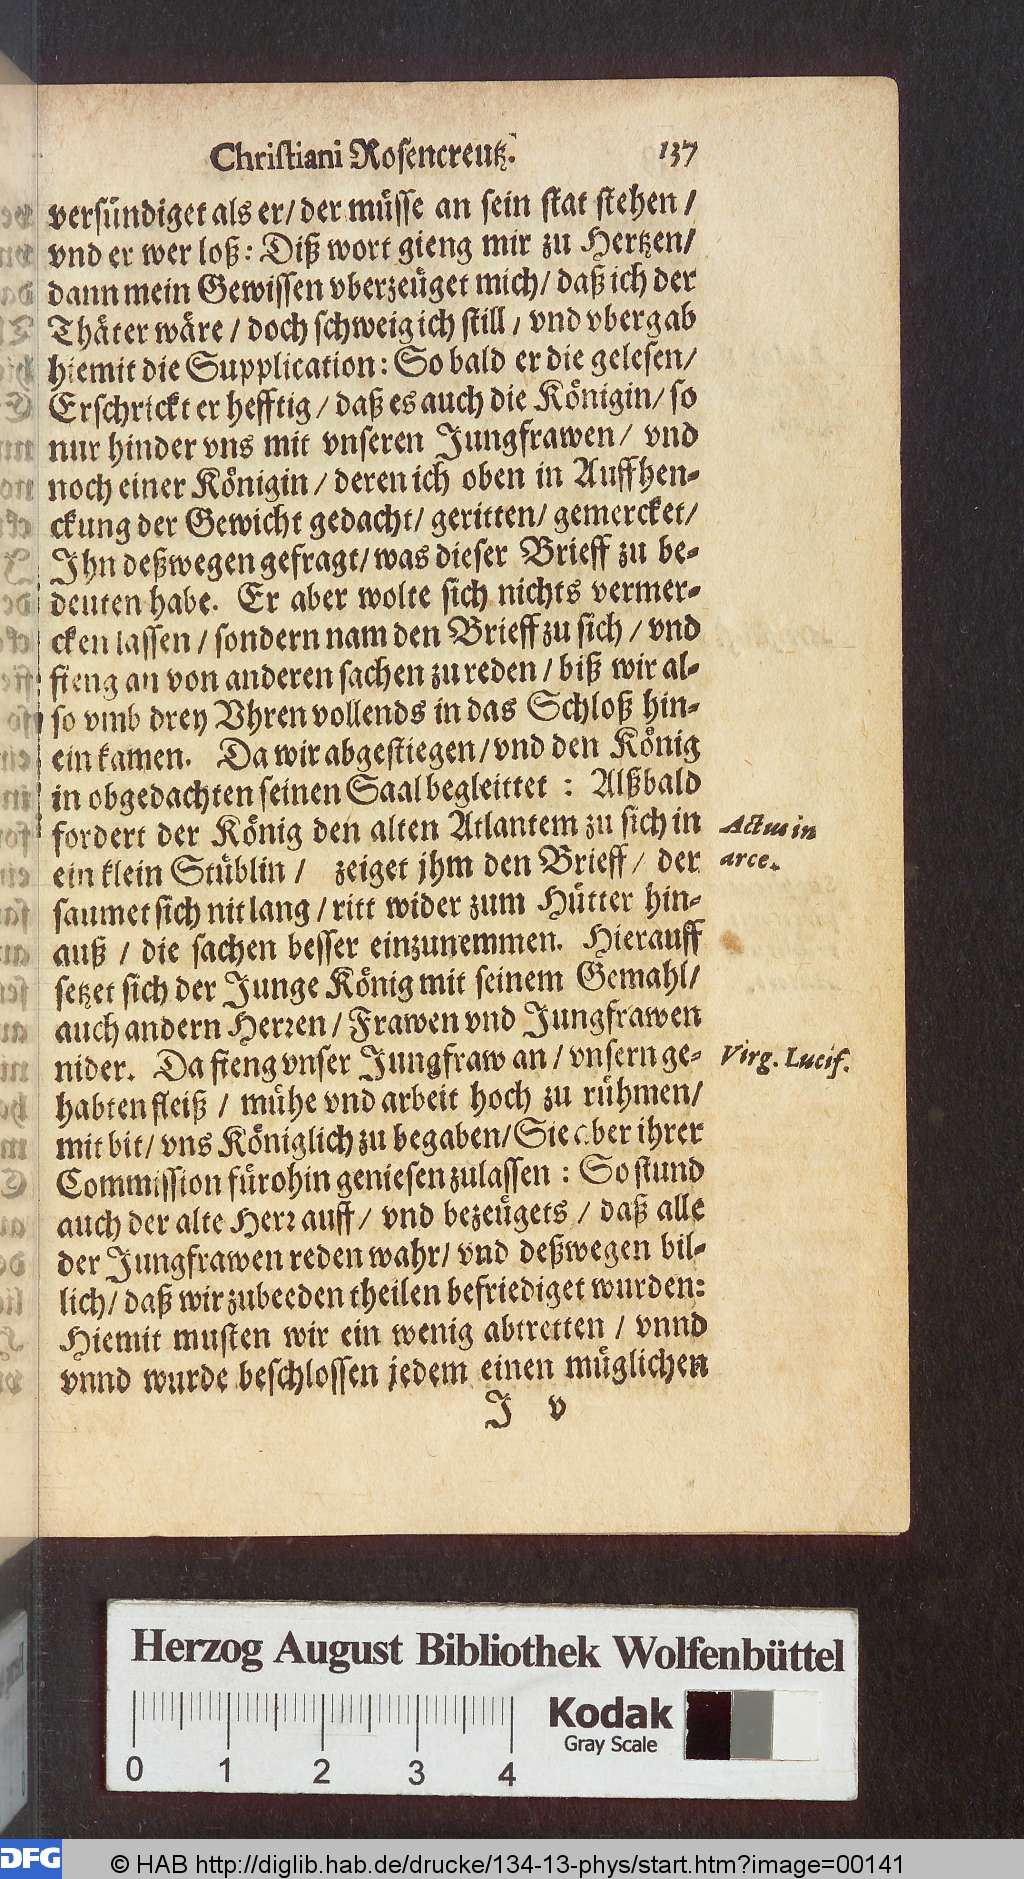 Christiani Rosencreutz. 137
versündiget als er/ der müsse an sein stat stehen/
vnd er wer loß: Diß wort gieng mir zu Hertzen/
dann mein Gewissen vberzeüget mich/ daß ich der
Thäter wäre/ doch schweig ich still/ vnd vbergab
hiemit die Supplication: So bald er die gelesen/
Erschrickt er hefftig/ daß es auch die Königin/ so
nur hinder vns mit vnseren Jungfrawen/ vnd
noch einer Königin/ deren ich oben in Auffhen-
ckung der Gewicht gedacht/ geritten/ gemercket/
Ihn deßwegen gefragt/ was dieser Brieff zu be-
deuten habe. Er aber wolte sich nichts vermer-
cken lassen/ sondern nam den Brieff zu sich/ vnd
fieng an von anderen sachen zu reden/ biß wir al-
so vmb drey Vhren vollends in das Schloß hin-
ein kamen. Da wir abgestiegen/ vnd den König
in obgedachten seinen Saal begleittet : Alßbald
fordert der König den alten Atlantem zu sich in
Actus in
ein klein Stüblin/ zeiget jhm den Brieff/ der
arce.
saumet sich nit lang/ ritt wider zum Hütter hin-
auß / die sachen besser einzunemmen. Hierauff
setzet sich der Junge König mit seinem Gemahl/
auch andern Herren/ Frawen vnd Jungfrawen
nider. Da fieng vnser Jungfraw an/ vnsern ge-
Virg. Lucif.
habten fleiß / mühe vnd arbeit hoch zu rühmen/
mit bit/ vns Königlich zu begaben/ Sie aber ihrer
Commission fürohin geniesen zulassen : So stund
auch der alte Herr auff/ vnd bezeügets / daß alle
der Jungfrawen reden wahr/ vnd deßwegen bil-
lich/ daß wir zubeeden theilen befriediget wurden:
Hiemit musten wir ein wenig abtretten / vnnd
vnnd wurde beschlossen jedem einen müglichen
J v
Herzog August Bibliothek Wolfenbüttel
Kodak
Gray Scale
0 1 2 3 4
DFG
© HAB http://diglib.hab.de/drucke/134-13-phys/start.htm?image=00141